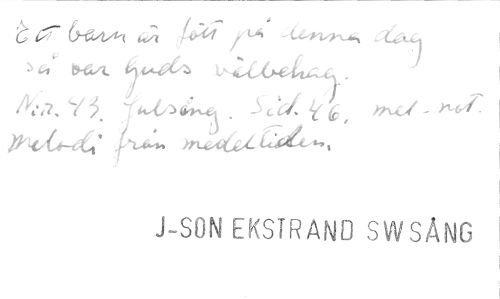 Ett barn är fött på denna dag
så var Guds välbehag.
N:r. 43. Julsång. Sid. 46. mel-not.
Melodi från medeltiden.
J-SON EKSTRAND SW SÅNG